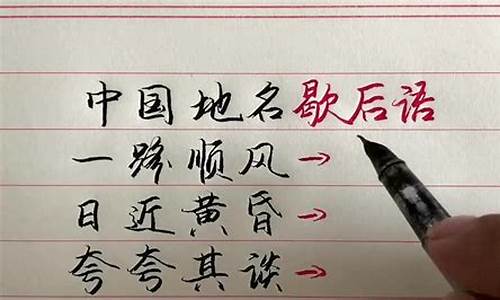 中国地名歇后语
一路顺风→
日近黄昏→
夸夸其谈→